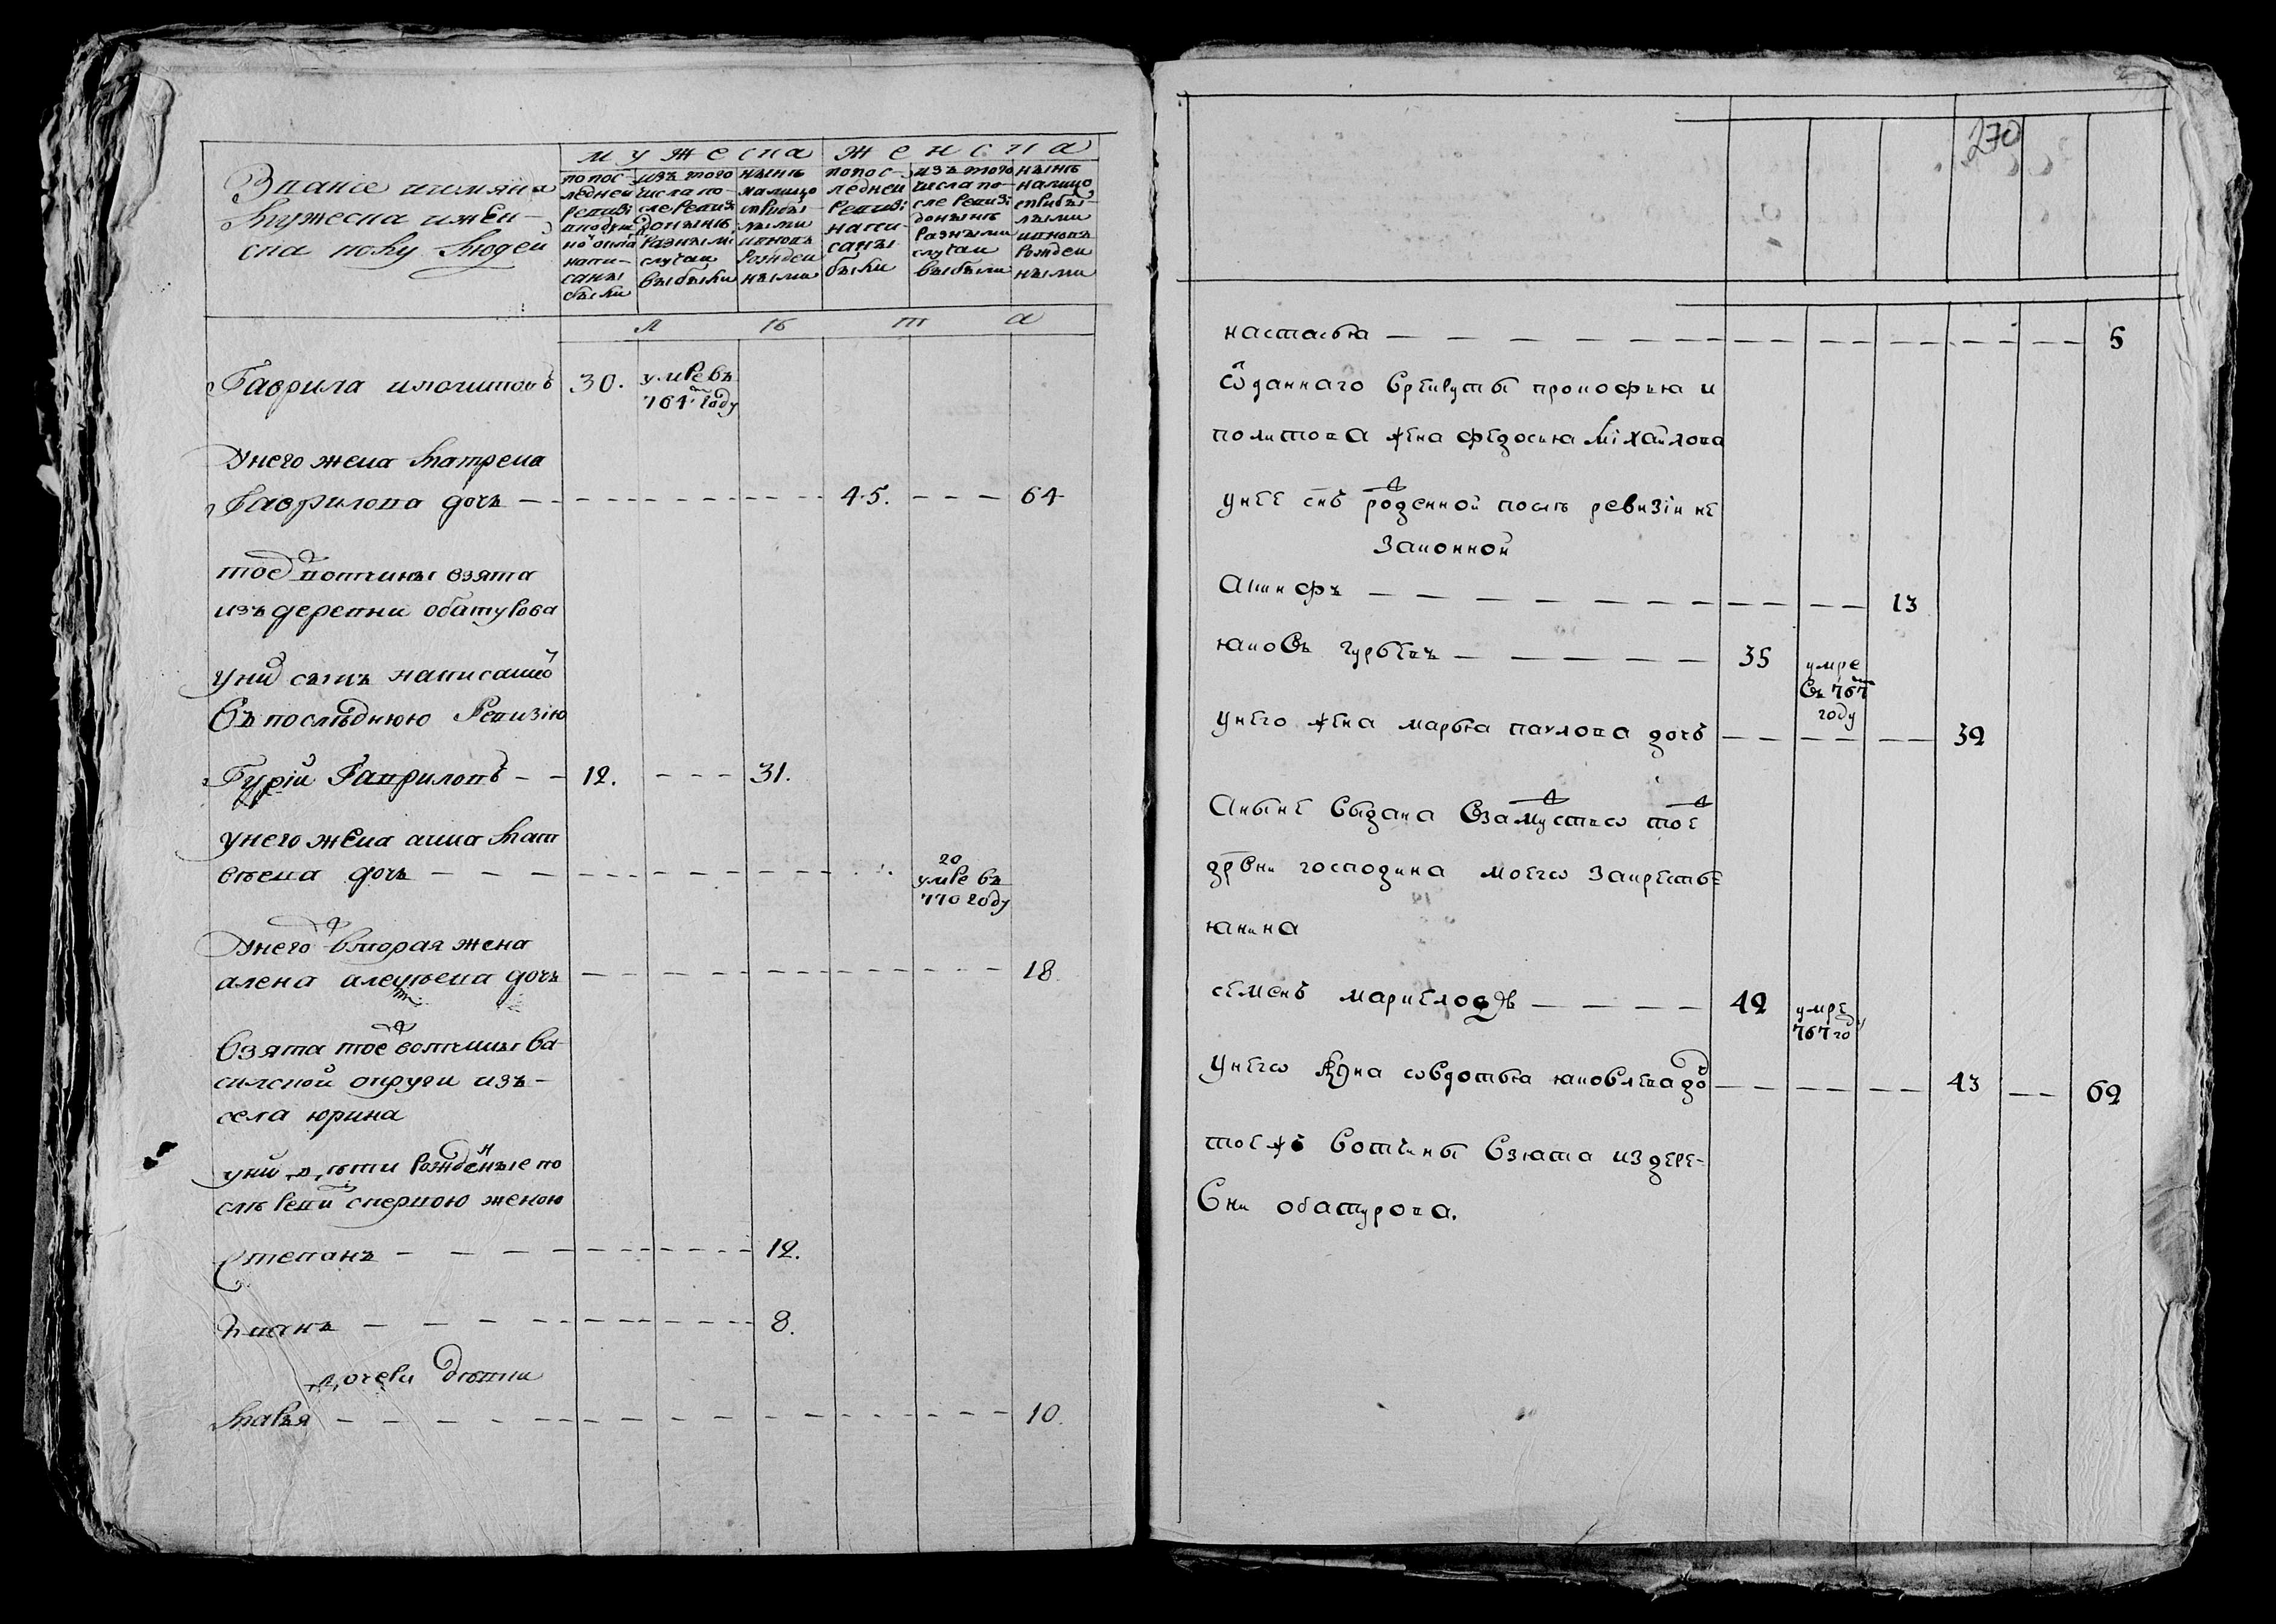 Званіе имяна
мужеска и жен-
ска полу людей
мужеска женска
по пос-
ледней
ревизі
и подуш
но окла
напи-
саны
были
изъ того
числа по-
сле ревизі
до ныне
разными
случаи
выбыли
ныне
на лицо
с прибы-
лыми
и вновь
рожден
ными
по пос-
ледней
ревизі
напи-
саны
были
изъ того
числа по-
сле ревизі
до ныне
разными
случаи
выбыли
ныне
на лицо
с прибы-
лыми
и вновь
рожден
ными
л ѣ т а
Гаврила 30. умре въ
764 году
У него жена матрена
Гаврилова дочь — 45. — 64
той вотчины взята
изъ деревни обатурова
у них сынъ написаной
въ последнюю ревизію
Гурій Гавриловъ — 12. — 31.
у него жена анна мат
веева дочь — 20
умре въ
770 году
У него вторая жена
алена алексеева дочь — 18
взята той вотчины ва
силской округи изъ-
села юрина
у них дети рожденые по
сле реви с первою женою
Степанъ — 12.
Иванъ — 8.
дочери дѣтки
марья — 10.
270
настасья — 5
ѿданнаго в рекруты прокофья и
политова жена федосья міхаилова
у нее снъ роденной после ревизіи не
законной
акинфъ — 13
яковъ гурьевъ — 35 умре
въ 767
году
у него жена марья павлова дочь — 32
а ныне выдана в замуство той
дрвни господина моего за крестье
янина
семенъ маркелов — 42 умре
767 году
у него жена овдотья яковлева до — 43 — 62
той жъ вотчины взята из дере-
вни обатурова.